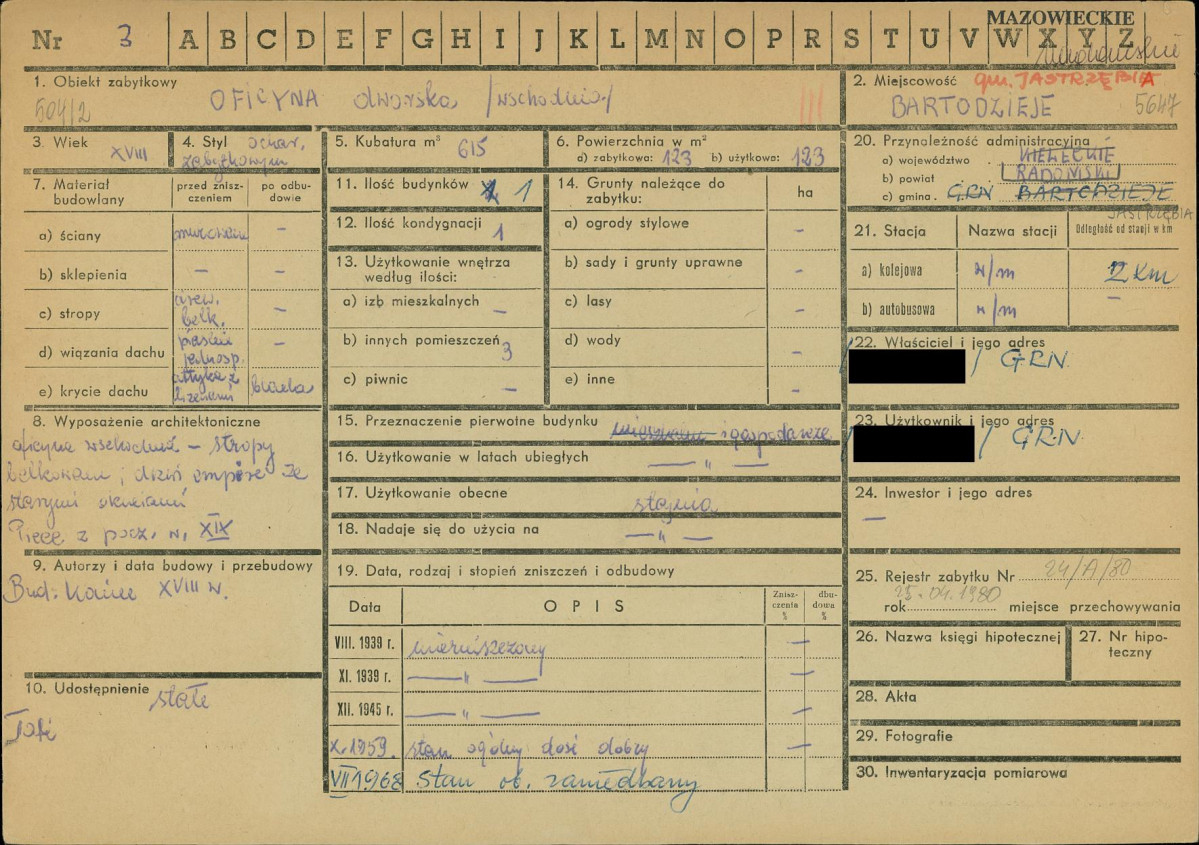 MAZOWIECKIE
Nr 3 A B C D E F G H I J K L M N O P R S T U V W X Y Z
1. Obiekt zabytkowy
OFICYNA dworska /wschodnia/
504/2
2. Miejscowość gm. JASTRZĘBIA
BARTODZIEJE 5647
3. Wiek XVIII
4. Styl o char.
zabytkowym
5. Kubatura m³ 615
6. Powierzchnia w m²
a) zabytkowa: 123 b) użytkowa: 123
7. Materiał budowlany
przed zniszczeniem
po odbudowie
a) ściany murowane –
b) sklepienia – –
c) stropy drew. belk. –
d) wiązania dachu jednosp. –
e) krycie dachu blacha
8. Wyposażenie architektoniczne
oficyna wschodnia – stropy
belkowane; drzwi empire ze
starymi okuciami
Piece z pocz. w. XIX
9. Autorzy i data budowy i przebudowy
Bud: koniec XVIII w.
10. Udostępnienie
stałe
11. Ilość budynków 1
12. Ilość kondygnacji 1
13. Użytkowanie wnętrza według ilości:
a) izb mieszkalnych –
b) innych pomieszczeń 3
c) piwnic –
14. Grunty należące do zabytku: ha
a) ogrody stylowe –
b) sady i grunty uprawne –
c) lasy –
d) wody –
e) inne –
15. Przeznaczenie pierwotne budynku mieszkalne i gospodarcze
16. Użytkowanie w latach ubiegłych — „ —
17. Użytkowanie obecne stajnia
18. Nadaje się do użycia na — „ —
19. Data, rodzaj i stopień zniszczeń i odbudowy
Data OPIS Zniszczenia % dbudowa %
VIII. 1939 r. niezniszczony –
XI. 1939 r. — „ — –
XII. 1945 r. — „ — –
X. 1959. stan ogólny dość dobry –
VII 1968 stan ob. zaniedbany
20. Przynależność administracyjna
a) województwo KIELECKIE
b) powiat RADOMSKI
c) gmina GRN BARTODZIEJE
JASTRZĘBIA
21. Stacja Nazwa stacji Odległość od stacji w km
a) kolejowa n/m 2 km
b) autobusowa n/m –
22. Właściciel i jego adres
/ / GRN
23. Użytkownik i jego adres
/ / GRN
24. Inwestor i jego adres
–
25. Rejestr zabytku Nr 24/A/80
rok 25.04.1980 miejsce przechowywania
26. Nazwa księgi hipotecznej
27. Nr hipoteczny
28. Akta
29. Fotografie
30. Inwentaryzacja pomiarowa